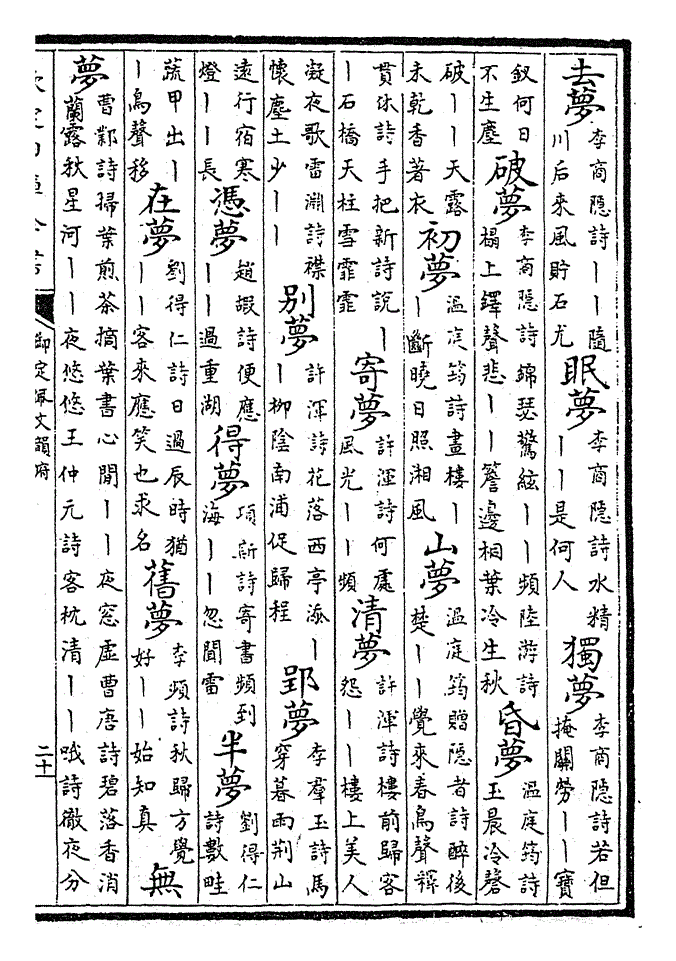 去夢李商隱詩丨丨隨川后來風貯石尤眠夢李商隱詩水精丨丨是何人獨夢李商隱詩若但掩關勞丨丨寶
釵何日不生塵破夢李商隱詩錦瑟驚絃丨丨頻陸游詩榻上鐸聲悲丨丨簷邊相葉冷生秋昏夢溫庭筠詩玉晨冷磬
破丨丨天露未乾香著衣初夢溫庭筠詩畫樓丨丨斷曉日照湘風山夢溫庭筠贈隱者詩醉後楚丨丨覺來春鳥聲禪
貫休詩手把新詩說丨丨石橋天柱雪霏霏寄夢許渾詩何處風光丨丨頻清夢許渾詩樓前歸客怨丨丨樓上美人
凝夜歌雷淵詩襟懷塵土少丨丨別夢許渾詩花落西亭添丨丨柳陰南浦促歸程郢夢李羣玉詩馬穿暮雨荆山
遠行宿寒燈丨丨長憑夢趙嘏詩便應丨丨過重湖得夢項斯詩寄書頻到海丨丨忽聞雷半夢劉得仁詩數畦
蔬甲出丨丨鳥聲移在夢劉得仁詩日過辰時猶丨丨客來應笑也求名舊夢李頻詩秋歸方覺好丨丨始知真無
夢曹鄴詩掃葉煎茶摘葉書心閒丨丨夜窓虛曹唐詩碧落香消蘭露秋星河丨丨夜悠悠王仲元詩客枕清丨丨哦詩徹夜分
欽定四庫全書 御定佩文韻府 二十